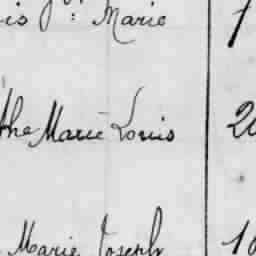 is Jh: Marie 1
the Marie Louis 20
Marie Joseph 10